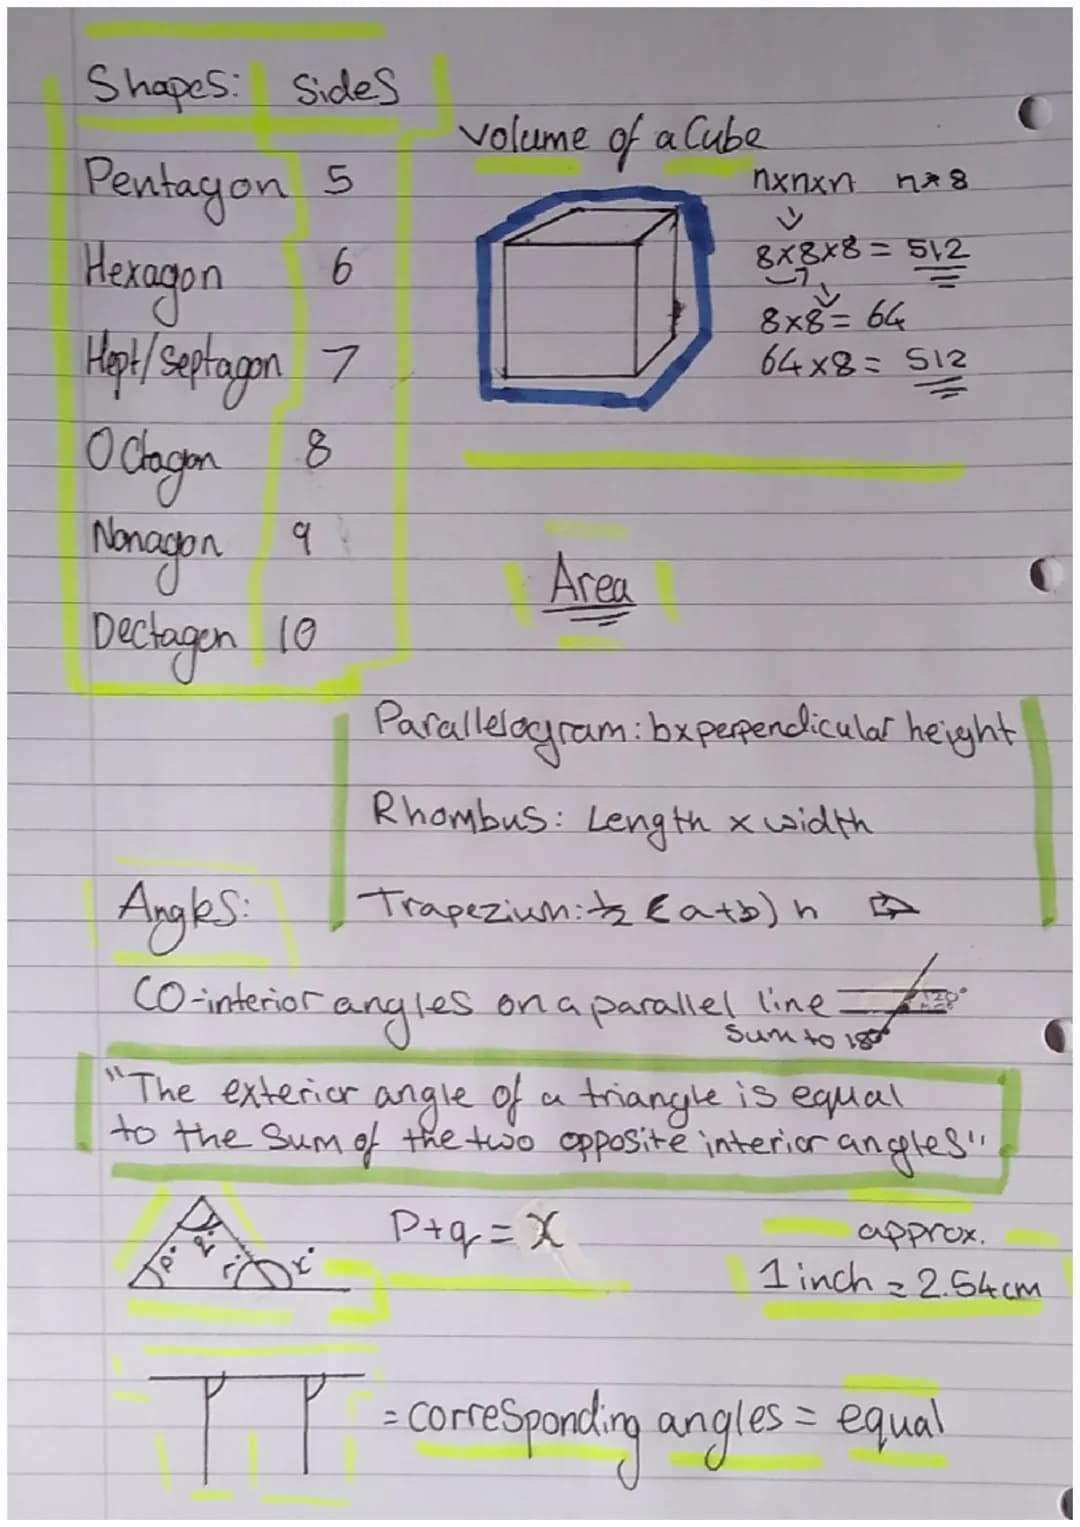 Shapes: Sides
Pentagon 5
Hexagon 6
Hept/Septagon 7
Octagon 8
Nonagon 9
Dectagon 10
Volume of a Cube
n×n×n n=8
8×8×8 = 512
8×8 = 64
64×8 = 512
Area
Parallelogram: b×perpendicular height
Rhombus: Length × width
Trapezium: ½ (a+b) h
Angles:
CO-interior angles on a parallel line
120°
Sum to 180°
"The exterior angle of a triangle is equal
to the Sum of the two opposite interior angles"
p° q° r° x°
P+q = x
approx.
1 inch = 2.54cm
= corresponding angles = equal